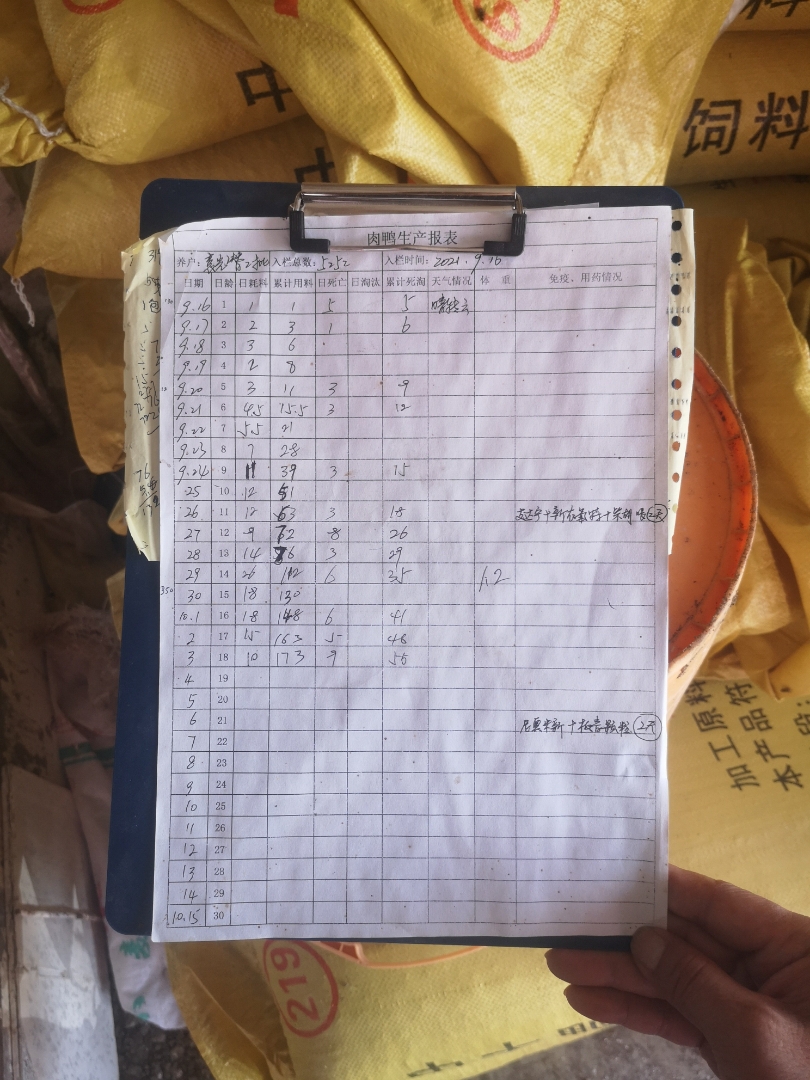 中
中
饲料
肉鸭生产报表
养户： 入栏总数：5252 入栏时间：2021.9.16
日期 日龄 日耗料 累计用料 日死亡 日淘汰 累计死淘 天气情况 体 重 免疫、用药情况
9.16 1 1 1 5 5 晴转云
9.17 2 2 3 1 6
9.18 3 3 6
9.19 4 2 8
9.20 5 3 11 3 9
9.21 6 4.5 15.5 3 12
9.22 7 5.5 21
9.23 8 7 28
9.24 9 11 39 3 15
25 10 12 51
26 11 12 63 3 18
27 12 9 72 8 26
28 13 14 86 3 29
29 14 26 112 6 35 1.2
30 15 18 130
10.1 16 18 148 6 41
2 17 15 163 5 46
3 18 10 173 9 55
4 19
5 20
6 21 2天
7 22
8 23
9 24
10 25
11 26
12 27
13 28
14 29
10.15 30
加工原料
产品符
本产品
219